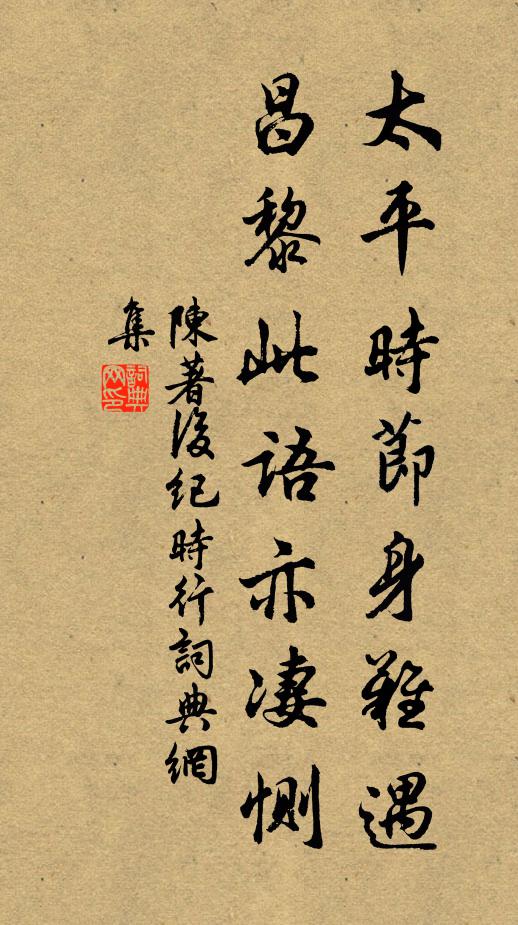 太平時節身難遇
昌黎此語亦淒惻
陳著後紀時行詞典網
集
詞典網印